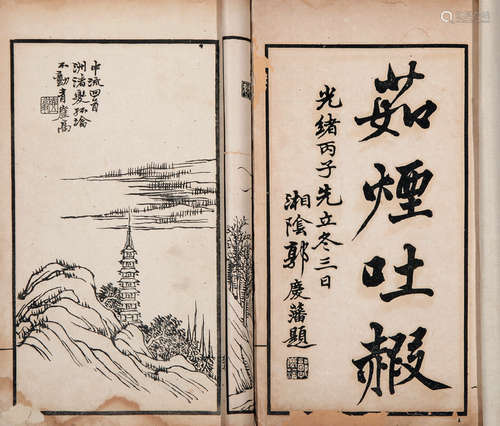 茹煙吐赮
光緒丙子先立冬三日
湘陰郭慶藩題
中流回首
洲渚
不動青崖高